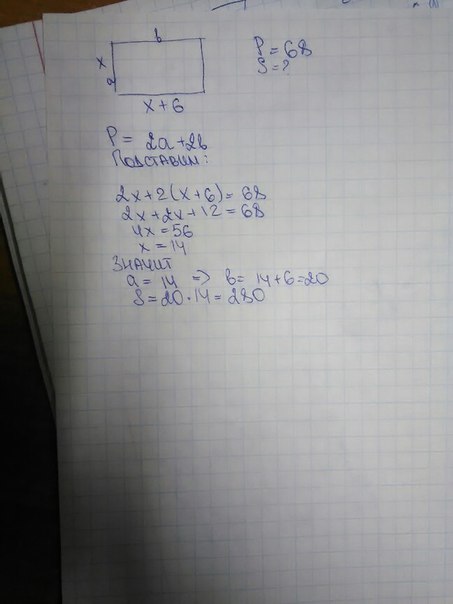 b
x
a
x + 6
P = 68
S = ?
P = 2a + 2b
Подставим:
2x + 2(x + 6) = 68
2x + 2x + 12 = 68
4x = 56
x = 14
Значит
a = 14 => b = 14 + 6 = 20
S = 20 · 14 = 280